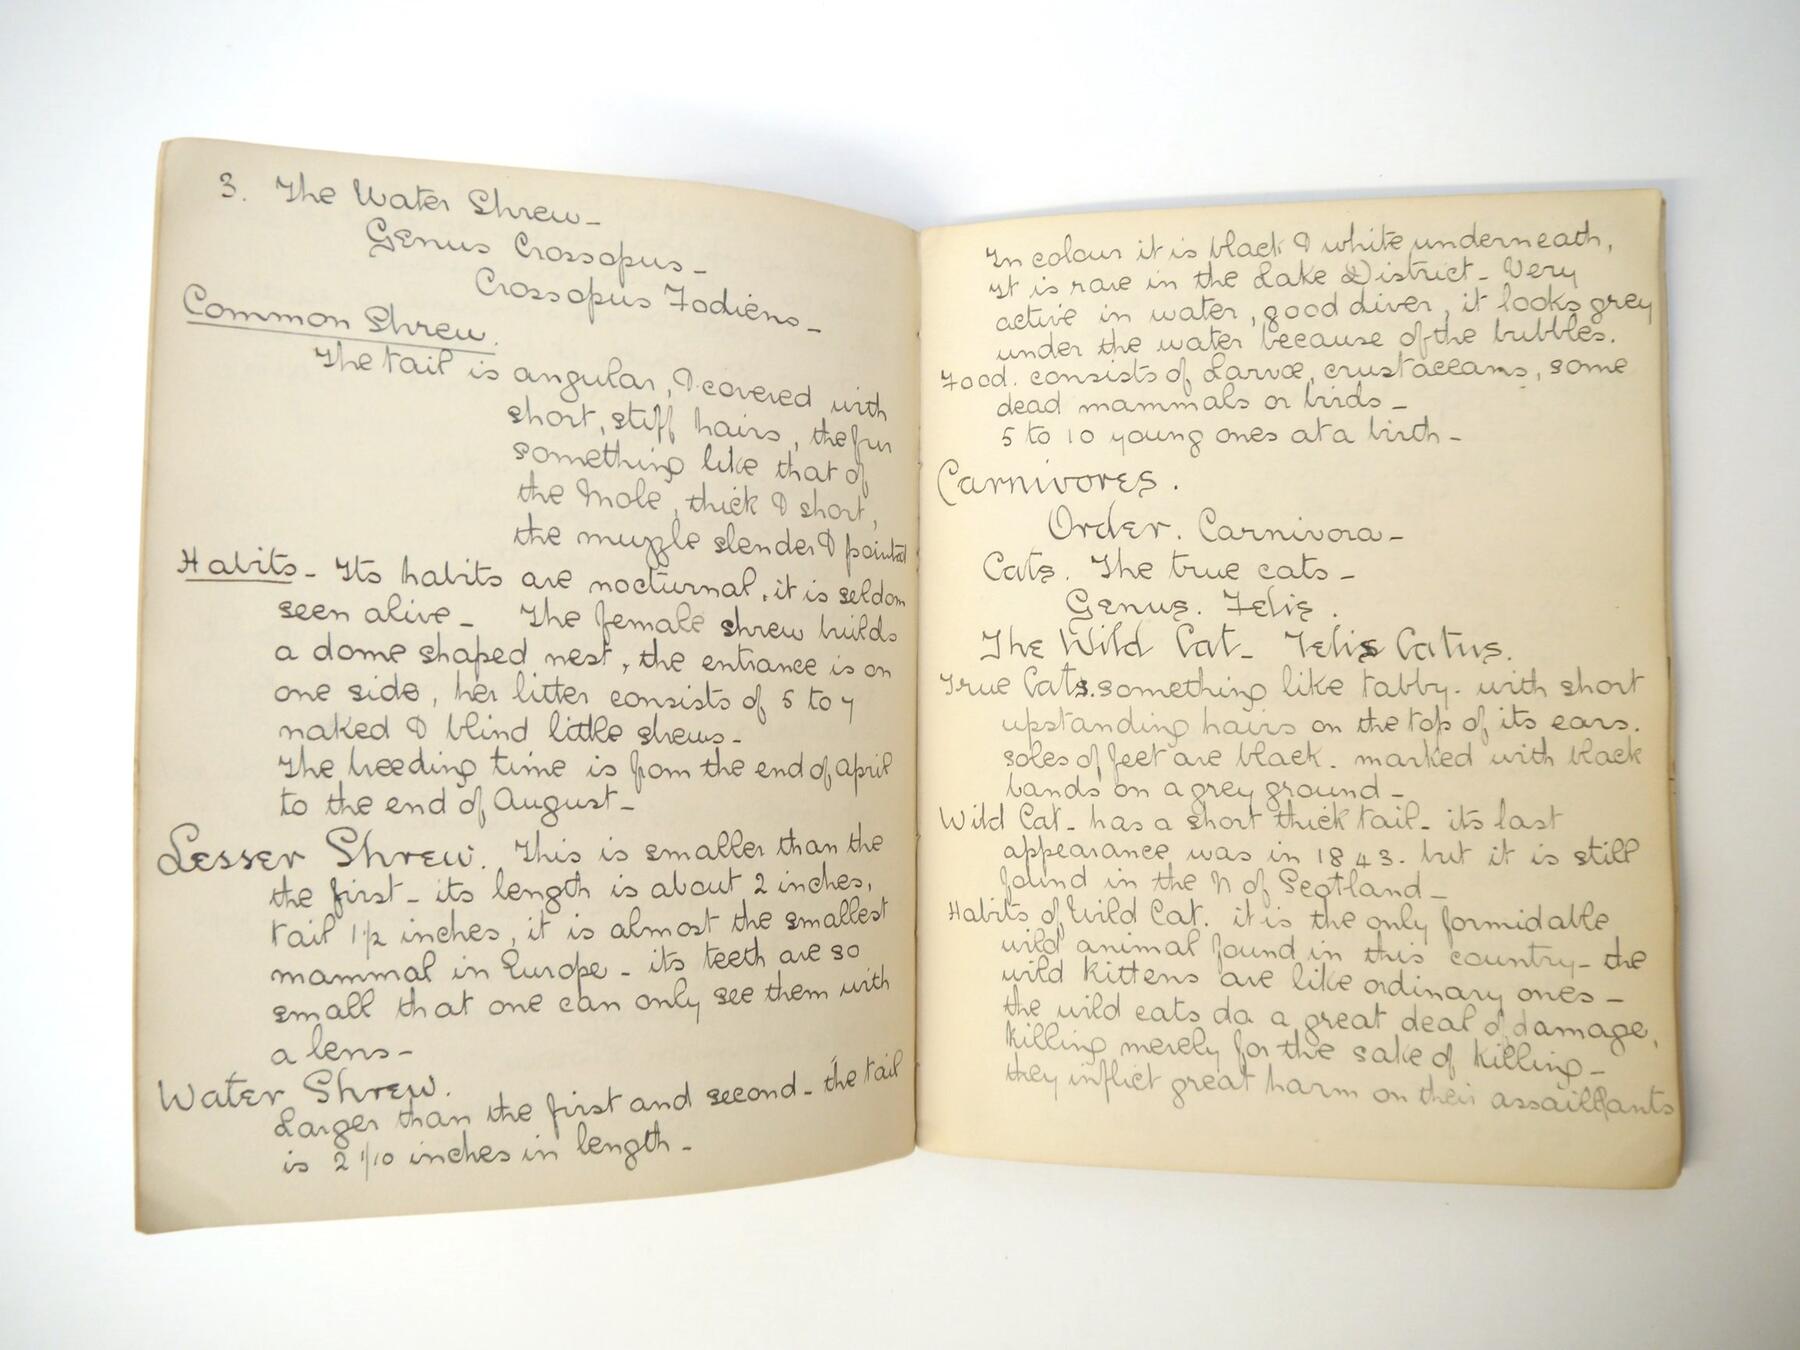 3. The Water Shrew-
Genus Crossopus-
Crossopus Fodiens-
Common Shrew.
The tail is angular, & covered with
short, stiff hairs, the fur
something like that of
the Mole, thick & short,
the muzzle slender & pointed
Habits- Its habits are nocturnal, it is seldom
seen alive- The female shrew builds
a dome shaped nest, the entrance is on
one side, her litter consists of 5 to 7
naked & blind little shrews-
The breeding time is from the end of April
to the end of August-
Lesser Shrew. This is smaller than the
the first- its length is about 2 inches,
tail 1 1/2 inches, it is almost the smallest
mammal in Europe- its teeth are so
small that one can only see them with
a lens-
Water Shrew.
Larger than the first and second- the tail
is 2 1/10 inches in length-
In colour it is black & white underneath,
It is rare in the Lake District- Very
active in water, good diver, it looks grey
under the water because of the bubbles.
Food. consists of Larvæ, crustaceans, some
dead mammals or birds-
5 to 10 young ones at a birth-
Carnivores.
Order. Carnivora-
Cats. The true cats-
Genus. Felis.
The Wild Cat- Felis Catus.
True Cats. something like tabby- with short
upstanding hairs on the top of its ears.
soles of feet are black. marked with black
bands on a grey ground-
Wild Cat- has a short thick tail- its last
appearance was in 1843- but it is still
found in the N of Scotland-
Habits of Wild Cat. it is the only formidable
wild animal found in this country- the
wild kittens are like ordinary ones-
the wild cats do a great deal of damage,
killing merely for the sake of killing-
they inflict great harm on their assaillants